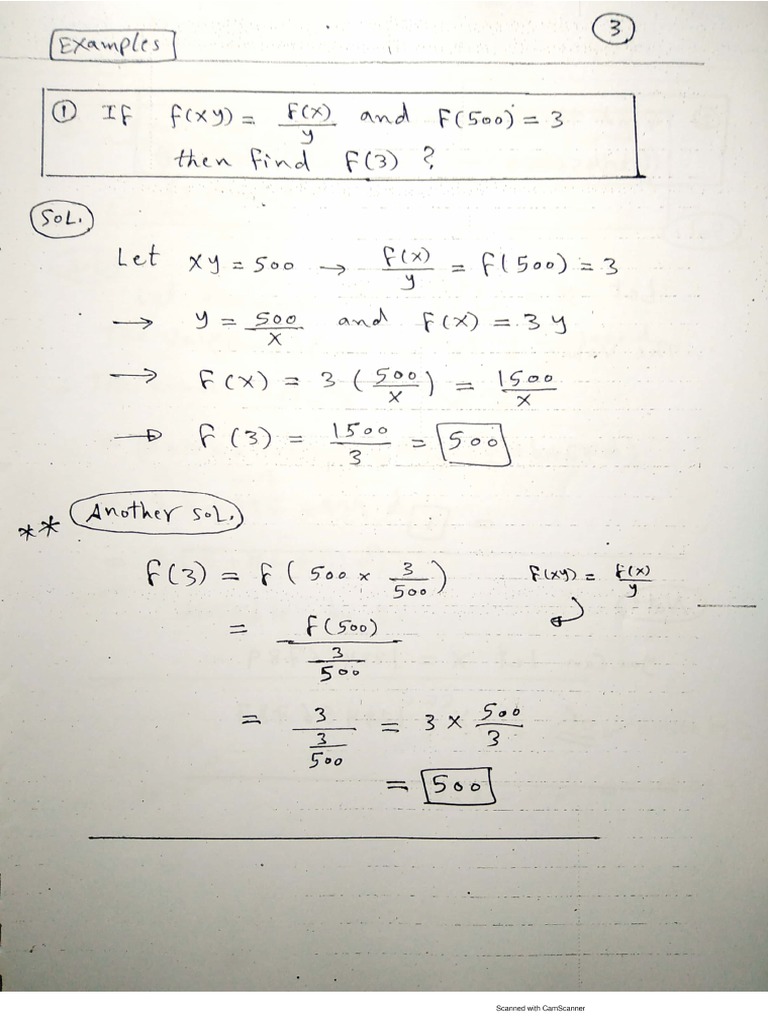 3
Examples
① If f(xy) = f(x)/y and f(500) = 3
then find f(3) ?
SOL.
Let xy = 500 → f(x)/y = f(500) = 3
→ y = 500/x and f(x) = 3y
→ f(x) = 3 (500/x) = 1500/x
→ f(3) = 1500/3 = 500
** Another SOL.
f(3) = f( 500 × 3/500 ) f(xy) = f(x)/y
= f(500)/(3/500)
= 3/(3/500) = 3 × 500/3
= 500
Scanned with CamScanner